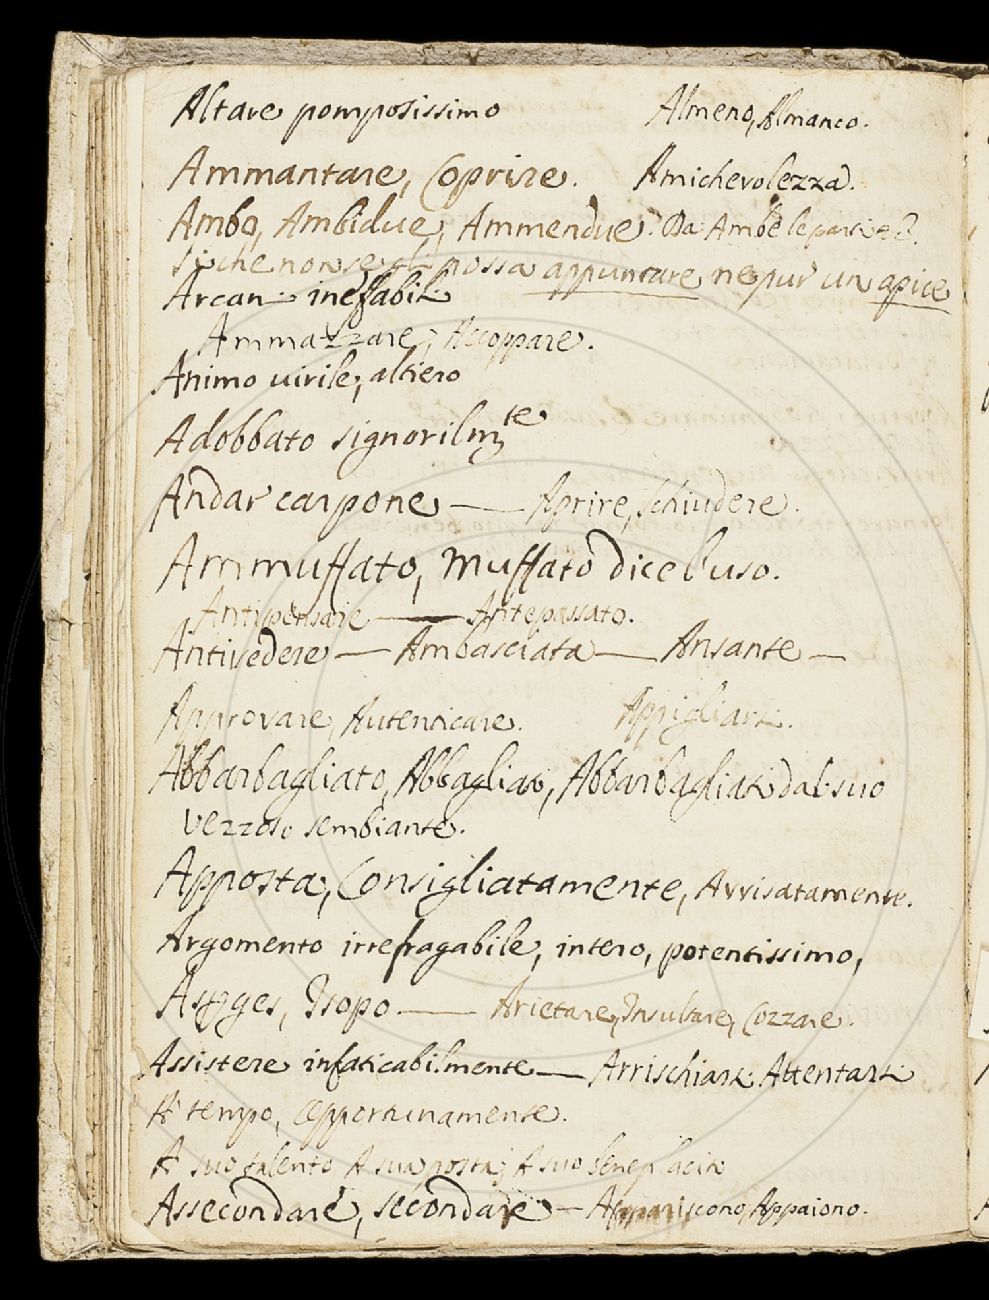 Altare pomposissimo Almeno, Almanco.
Ammantare, Coprire. Amichevolezza.
Ambo, Ambidue, Ammendue. Da Ambe le parti
siche non se gli possa appuntare ne pur un apice
Arcani ineffabili
Ammazzare, Accoppare.
Animo virile, altiero
Adobbato signorilmte
Andar carpone — Aprire, Schiudere.
Ammuffato, Muffato dice l'uso.
Antipensare — Antepassato.
Antivedere — Ambasciata — Ansante —
Approvare, Autenticare. Appigliarsi.
Abbarbagliato, Abbagliato, Abbarbagliati dal suo
vezzoso sembiante.
Apposta, Consigliatamente, Avvisatamente.
Argomento irrefragabile, intero, potentissimo,
Isopo — Arietare, Insultare, Cozzare.
Assistere infaticabilmente — Arrischiarsi Attentarsi
A tempo, Opportunamente.
A suo talento A sua posta, A suo beneplacito
Assecondare, secondare — Appariscono, Appaiono.